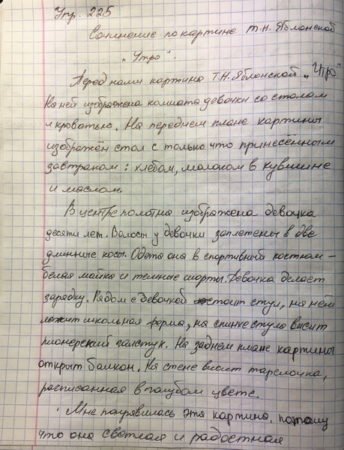 Упр. 225
Сочинение по картине Т.Н. Яблонской
„Утро".
Перед нами картина Т.Н. Яблонской „Утро"
На ней изображена комната девочки со столом
и кроватью. На переднем плане картины
изображён стол с только что принесённым
завтраком: хлебом, молоком в кувшине
и маслом.
В центре полотна изображена девочка
десяти лет. Волосы у девочки заплетены в две
длинные косы. Одета она в спортивный костюм -
белая майка и темные шорты. Девочка делает
зарядку. Рядом с девочкой стоит стул, на нем
лежит школьная форма, на спинке стула висит
пионерский галстук. На заднем плане картины
открыт балкон. На стене висит тарелочка,
расписанная в голубом цвете.
Мне понравилась эта картина, потому
что она светлая и радостная